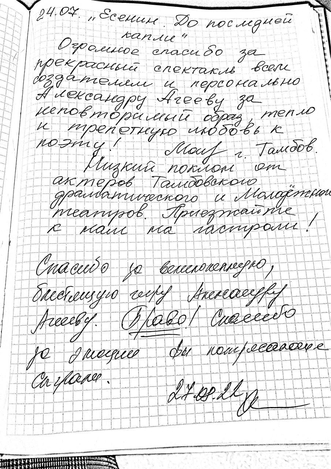 24.07. „Есенин. До последней
капли"
Огромное спасибо за
прекрасный спектакль всем
создателям и персонально
Александру Агееву за
неповторимый образ, тепло
и трепетную любовь к
поэту!
г. Тамбов.
Низкий поклон от
актеров Тамбовского
драматического и Молодёжного
театров. Приезжайте
к нам на гастроли!
Спасибо за великолепную,
блестящую игру Александру
Агееву. Браво! Спасибо
за эмоции Вы потрясающе
сыграли.
27.08.22